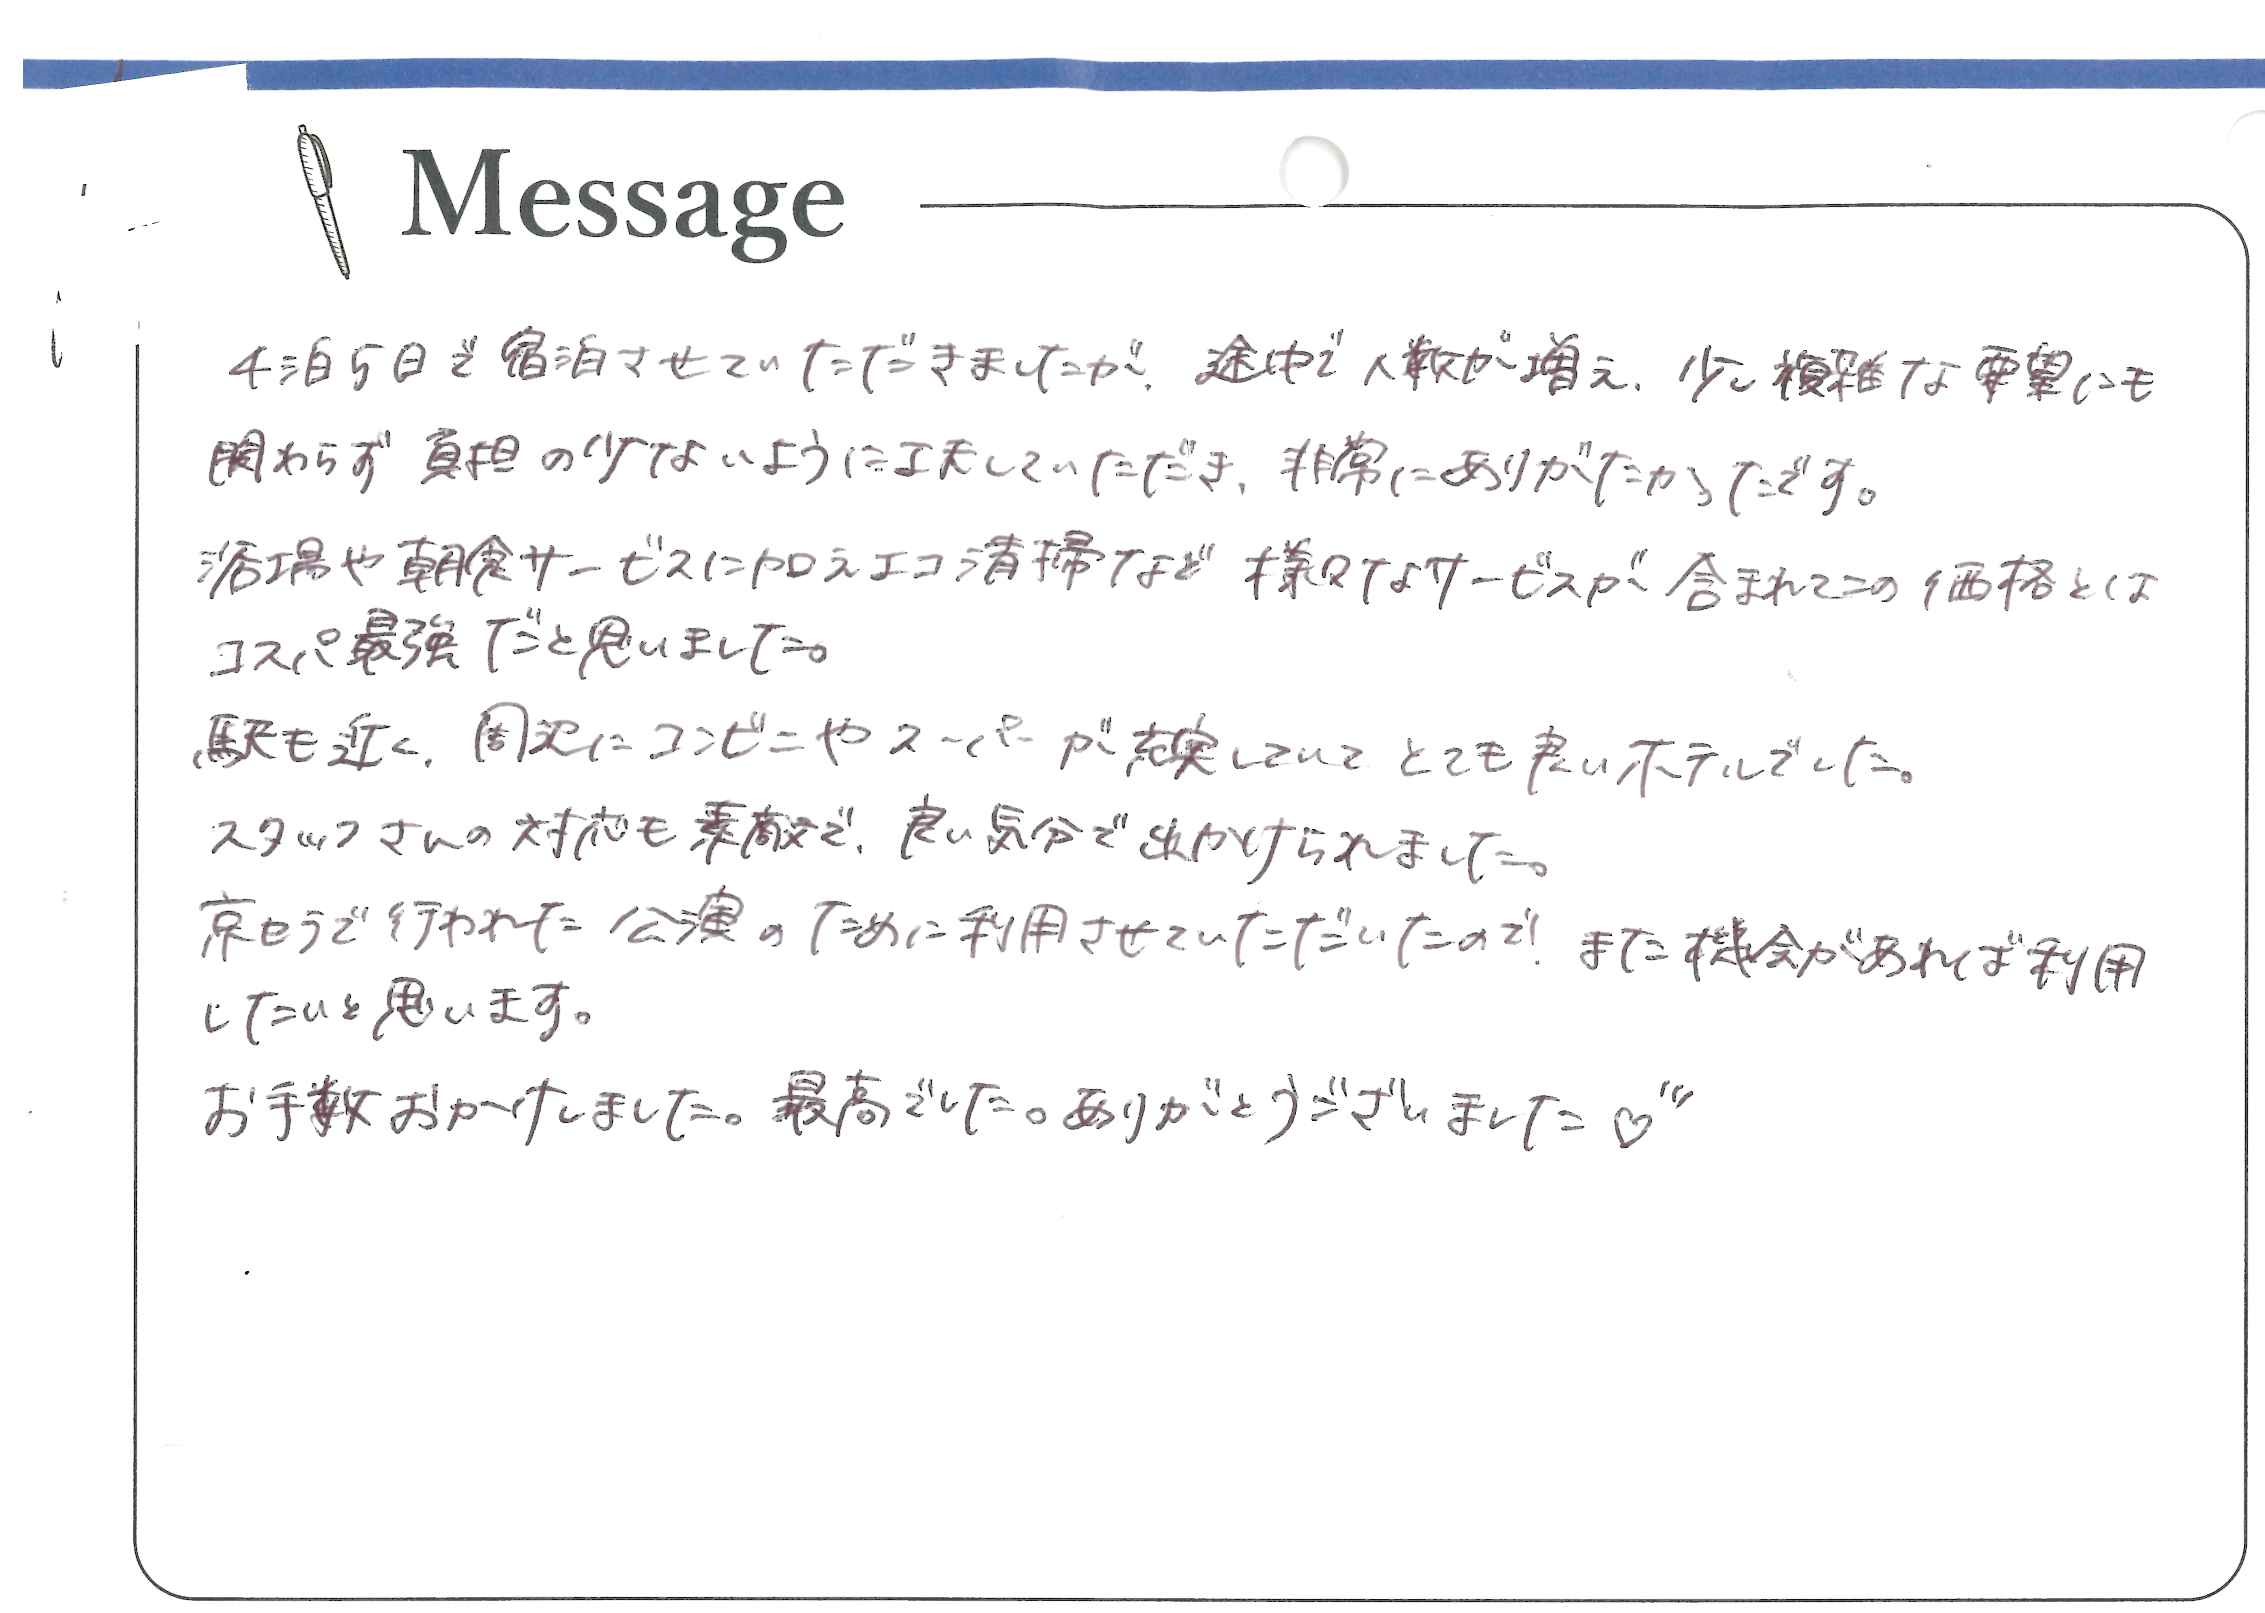 Message
4泊5日で宿泊させていただきましたが、途中で人数が増え、少し複雑な要望にも
関わらず負担の少ないように工夫していただき、非常にありがたかったです。
浴場や朝食サービスに加えエコ清掃など様々なサービスが含まれてこの価格とは
コスパ最強だと思いました。
駅も近く、周辺にコンビニやスーパーが充実していてとても良いホテルでした。
スタッフさんの対応も素敵で、良い気分で出かけられました。
京セラで行われた公演のために利用させていただいたので!また機会があれば利用
したいと思います。
お手数おかけしました。最高でした。ありがとうございました♡